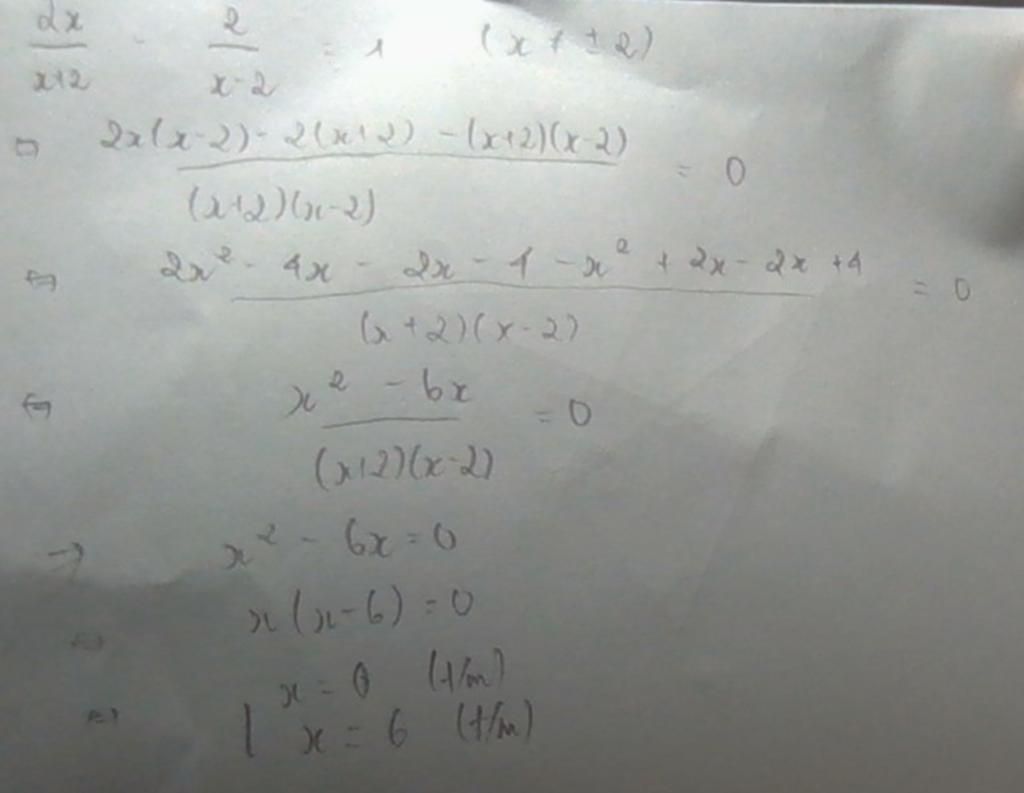 2x/(x+2) - 2/(x-2) = 1 (x ≠ ±2)
⇔ (2x(x-2) - 2(x+2) - (x+2)(x-2))/((x+2)(x-2)) = 0
⇔ (2x² - 4x - 2x - 4 - x² + 2x - 2x + 4)/((x+2)(x-2)) = 0
⇔ (x² - 6x)/((x+2)(x-2)) = 0
→ x² - 6x = 0
⇔ x(x-6) = 0
⇔ x = 0 (t/m)
x = 6 (t/m)